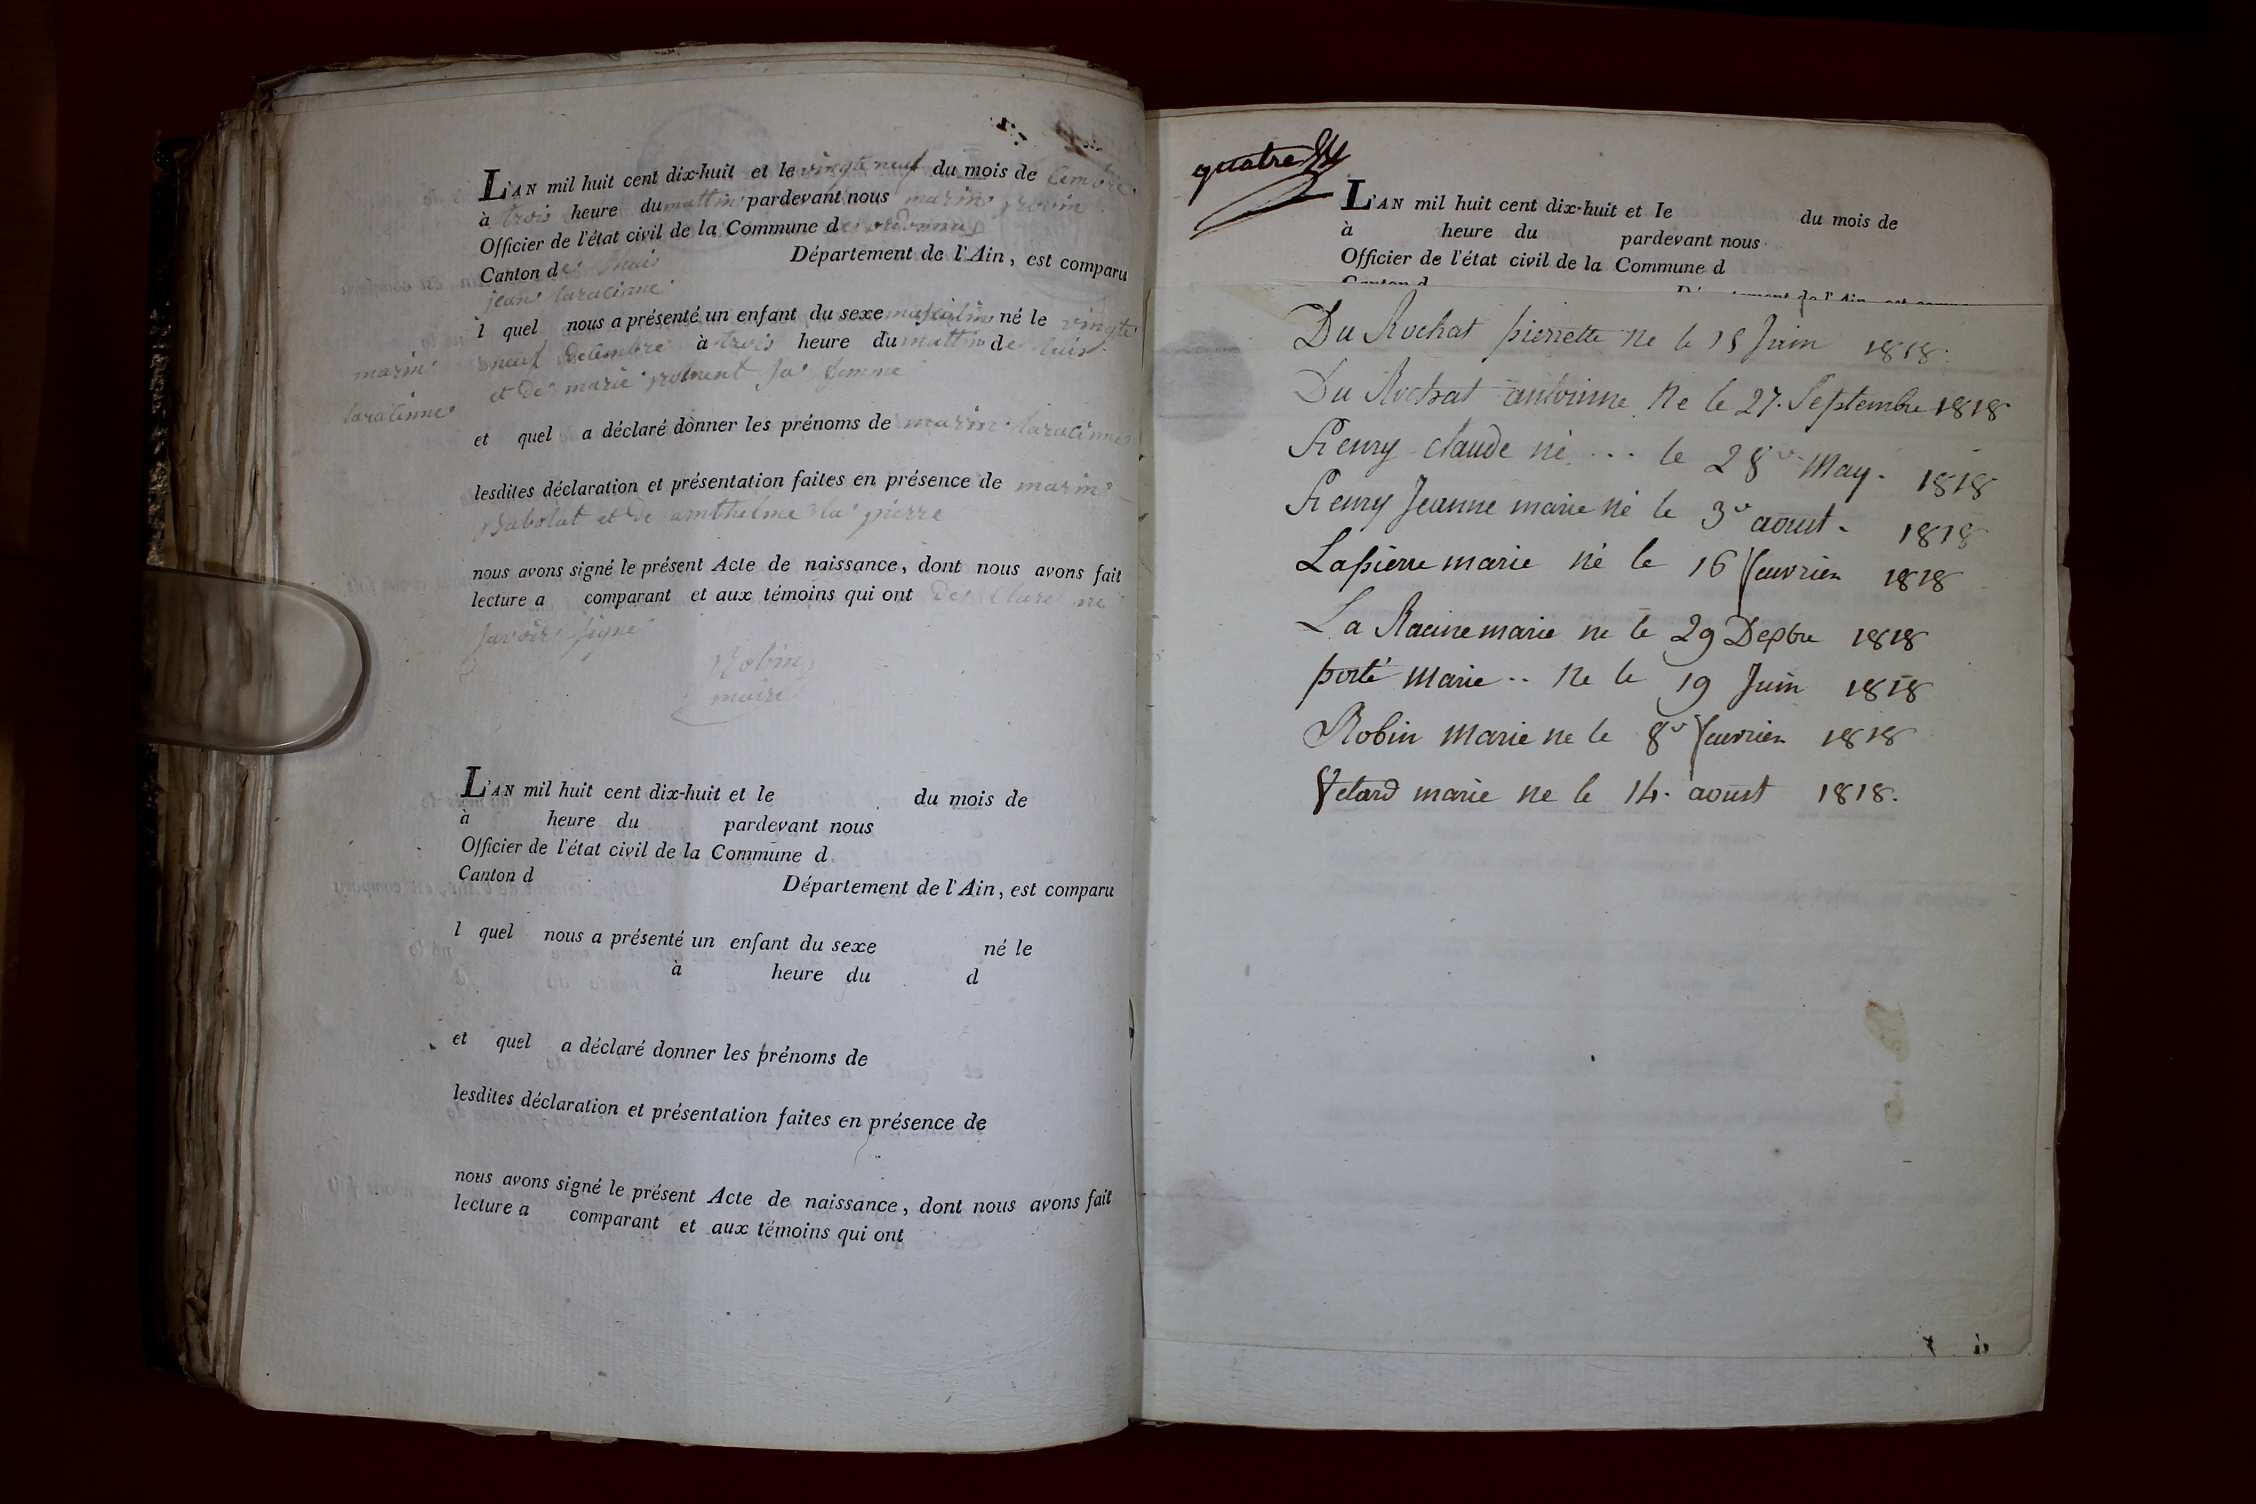 L'AN mil huit cent dix-huit et le vingte neuf du mois de
à trois heure du mattin pardevant nous marin
Officier de l'état civil de la Commune d
Canton de Département de l'Ain, est comparu
jean laracinne
l quel nous a présenté un enfant du sexe masculin né le vingte
marin neuf decembre à trois heure du mattin de luis
et de marie sa femme
laracinne
et quel a déclaré donner les prénoms de marin laracinne
lesdites déclaration et présentation faites en présence de marin
Babolat et de anthelme la pierre
nous avons signé le présent Acte de naissance, dont nous avons fait
lecture a comparant et aux témoins qui ont de Clare ne
savoir signe
Robin
maire
L'AN mil huit cent dix-huit et le du mois de
à heure du pardevant nous
Officier de l'état civil de la Commune d
Canton d Département de l'Ain, est comparu
l quel nous a présenté un enfant du sexe né le
à heure du d
et quel a déclaré donner les prénoms de
lesdites déclaration et présentation faites en présence de
nous avons signé le présent Acte de naissance, dont nous avons fait
lecture a comparant et aux témoins qui ont
quatre
L'AN mil huit cent dix-huit et le du mois de
à heure du pardevant nous
Officier de l'état civil de la Commune d
Du Rochat pierrette ne le 15 Juin 1818.
Du Rochat antoinne Ne le 27. Septembre 1818
fleury claude né ... le 28 May. 1818
fleury Jeanne marie né le 3 aoust. 1818
Lapierre marie né le 16 feuvrier 1818
La Racine marie ne le 29 Depbre 1818
porté Marie .. Ne le 19 Juin 1818
Robin Marie ne le 8 feuvrier 1818
Vetard marie ne le 14. aoust 1818.